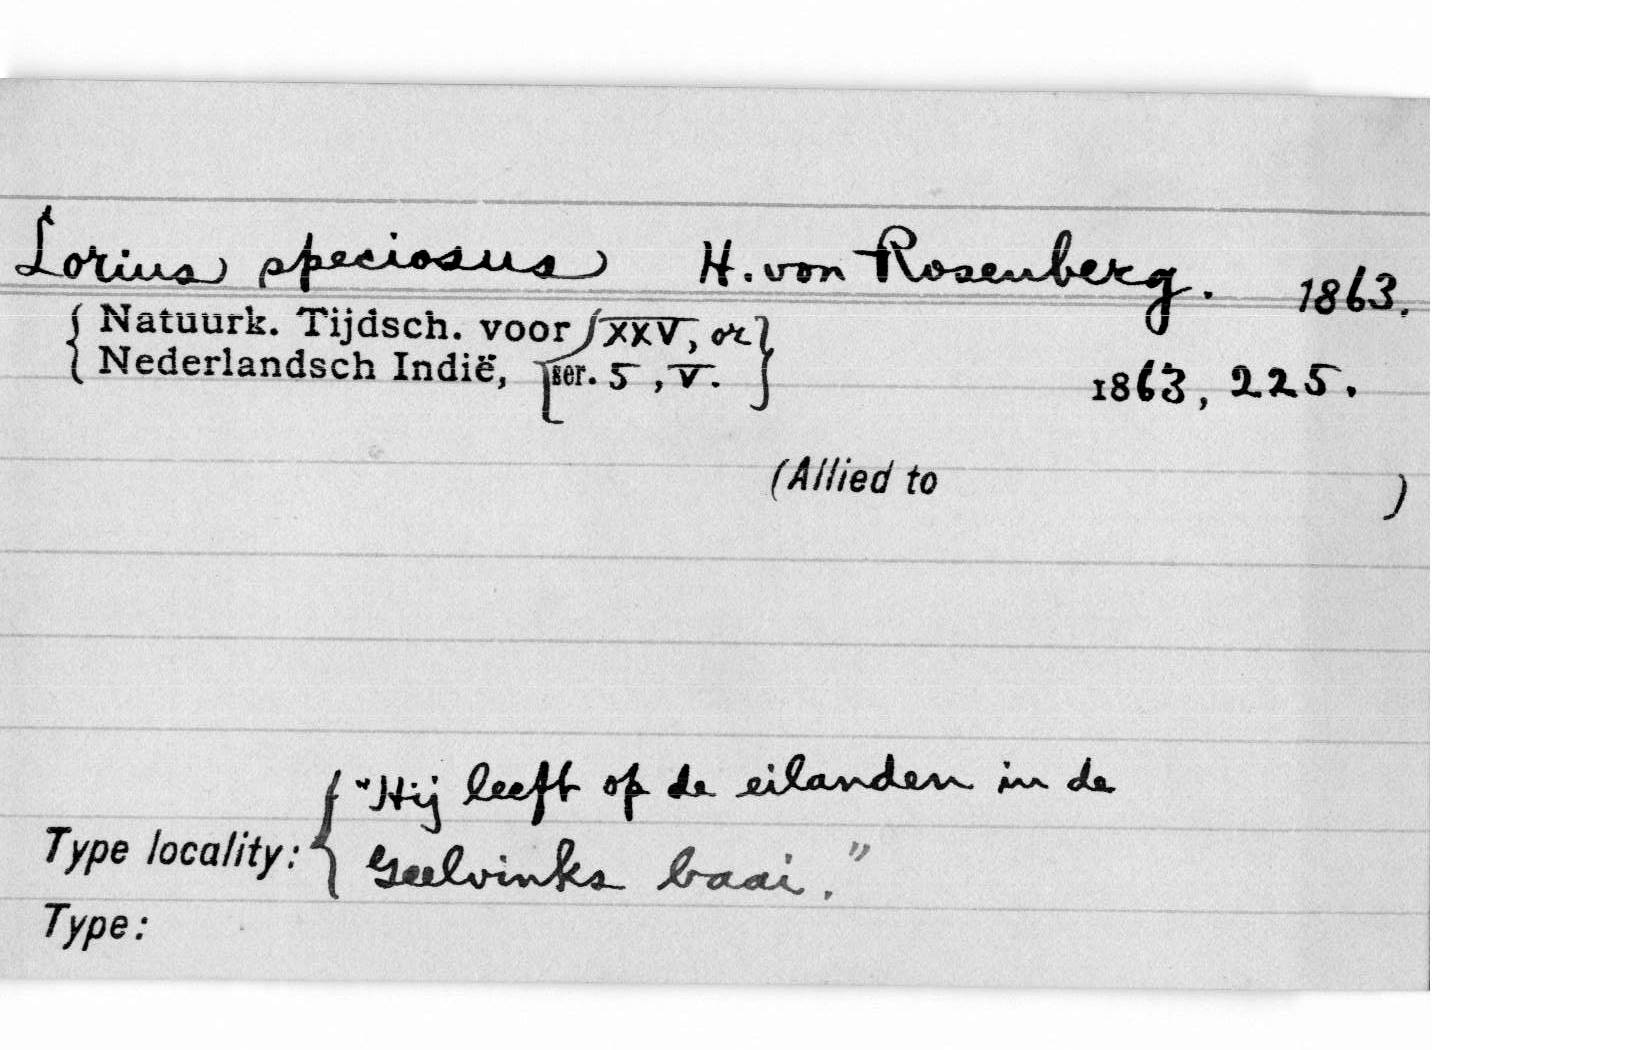 Lorius speciosus H. von Rosenberg. 1863.
{ Natuurk. Tijdsch. voor { XXV, or }
{ Nederlandsch Indië, { ser. 5, V. } 1863, 225.
(Allied to )
"Hij leeft op de eilanden in de
Type locality: { Geelvinks baai."
Type: